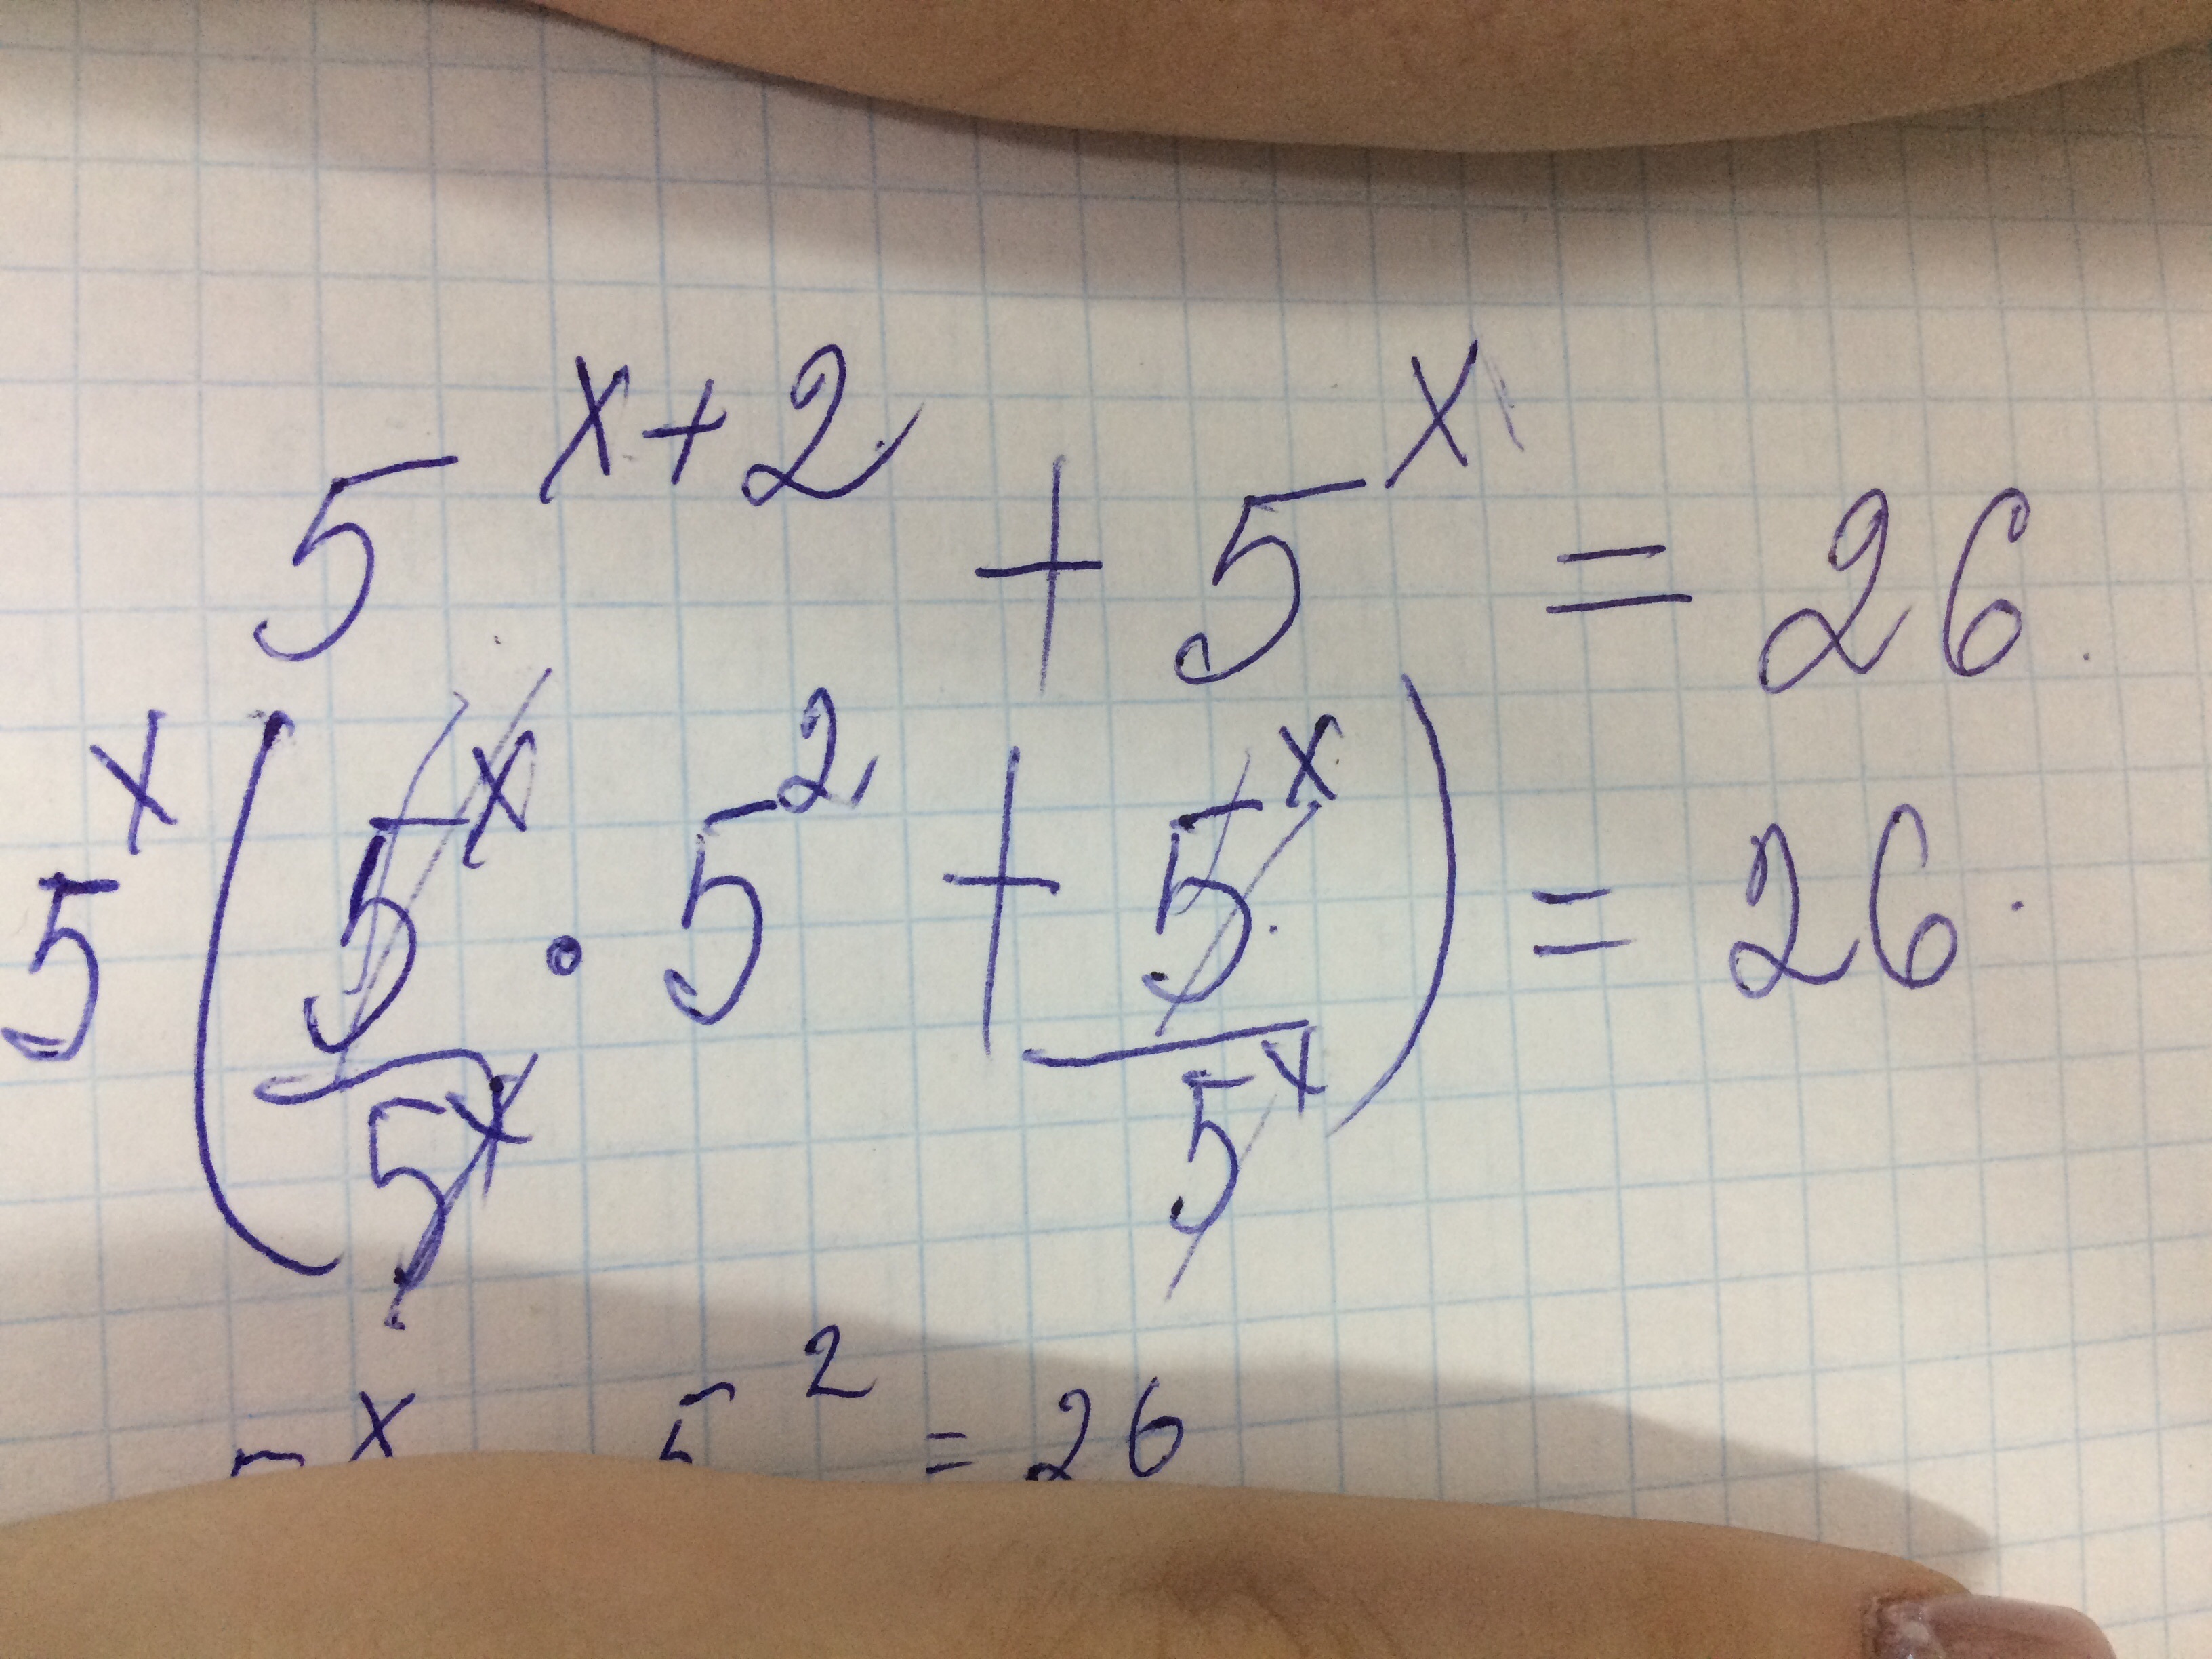 5^{x+2} + 5^x = 26
5^x ( 5^x/5^x · 5^2 + 5^x/5^x ) = 26
5^x 5^2 = 26